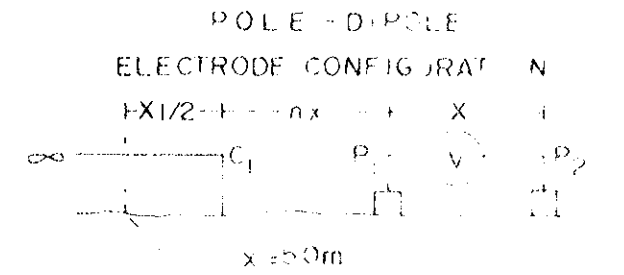 POLE-DIPOLE
ELECTRODE CONFIGURATION
X1/2 nx X
∞ C1 P1 V P2
x=50m